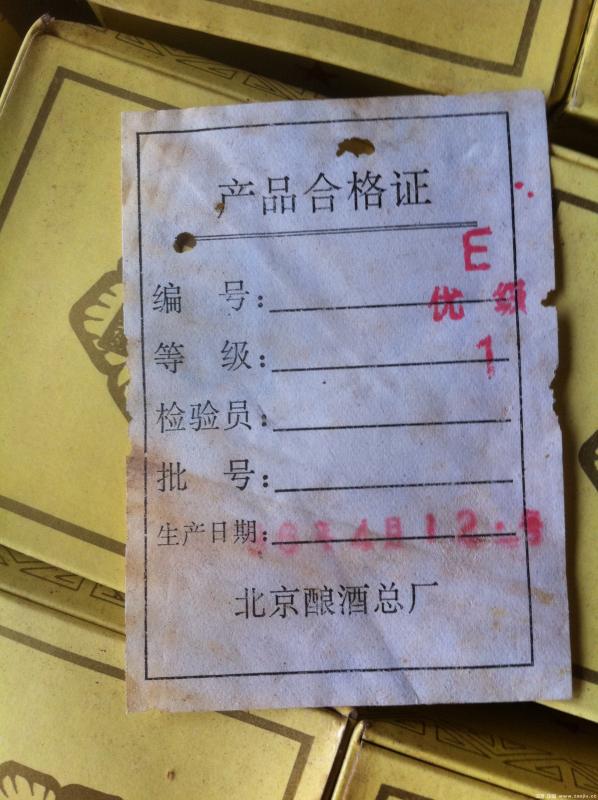 产品合格证
E
编 号:
优级
等 级:
1
检验员:
批 号:
生产日期: 8年4月12日
北京酿酒总厂